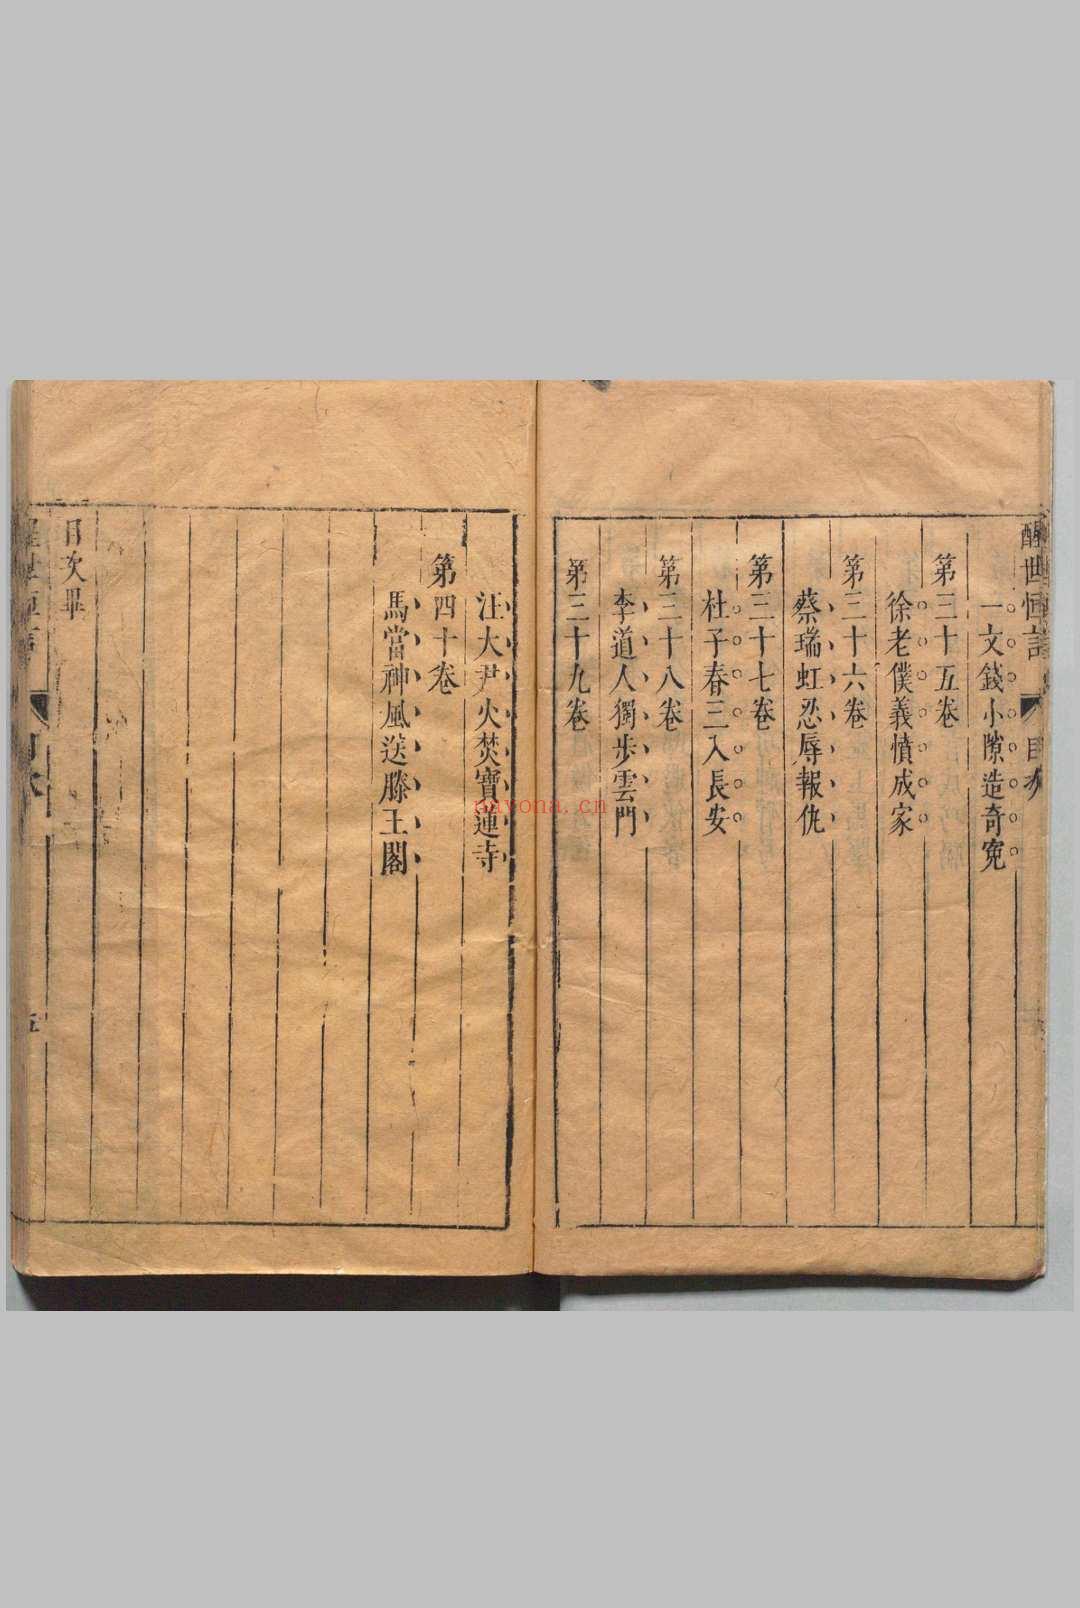 醒世恒 目次
一文錢小隙造奇寃
第三十五卷
徐老僕義憤成家
第三十六卷
蔡瑞虹忍辱報仇
第三十七卷
杜子春三入長安
第三十八卷
李道人獨步雲門
第三十九卷
汪大尹火焚寶蓮寺
第四十卷
馬當神風送滕王閣
目次畢
五
nayona.cn